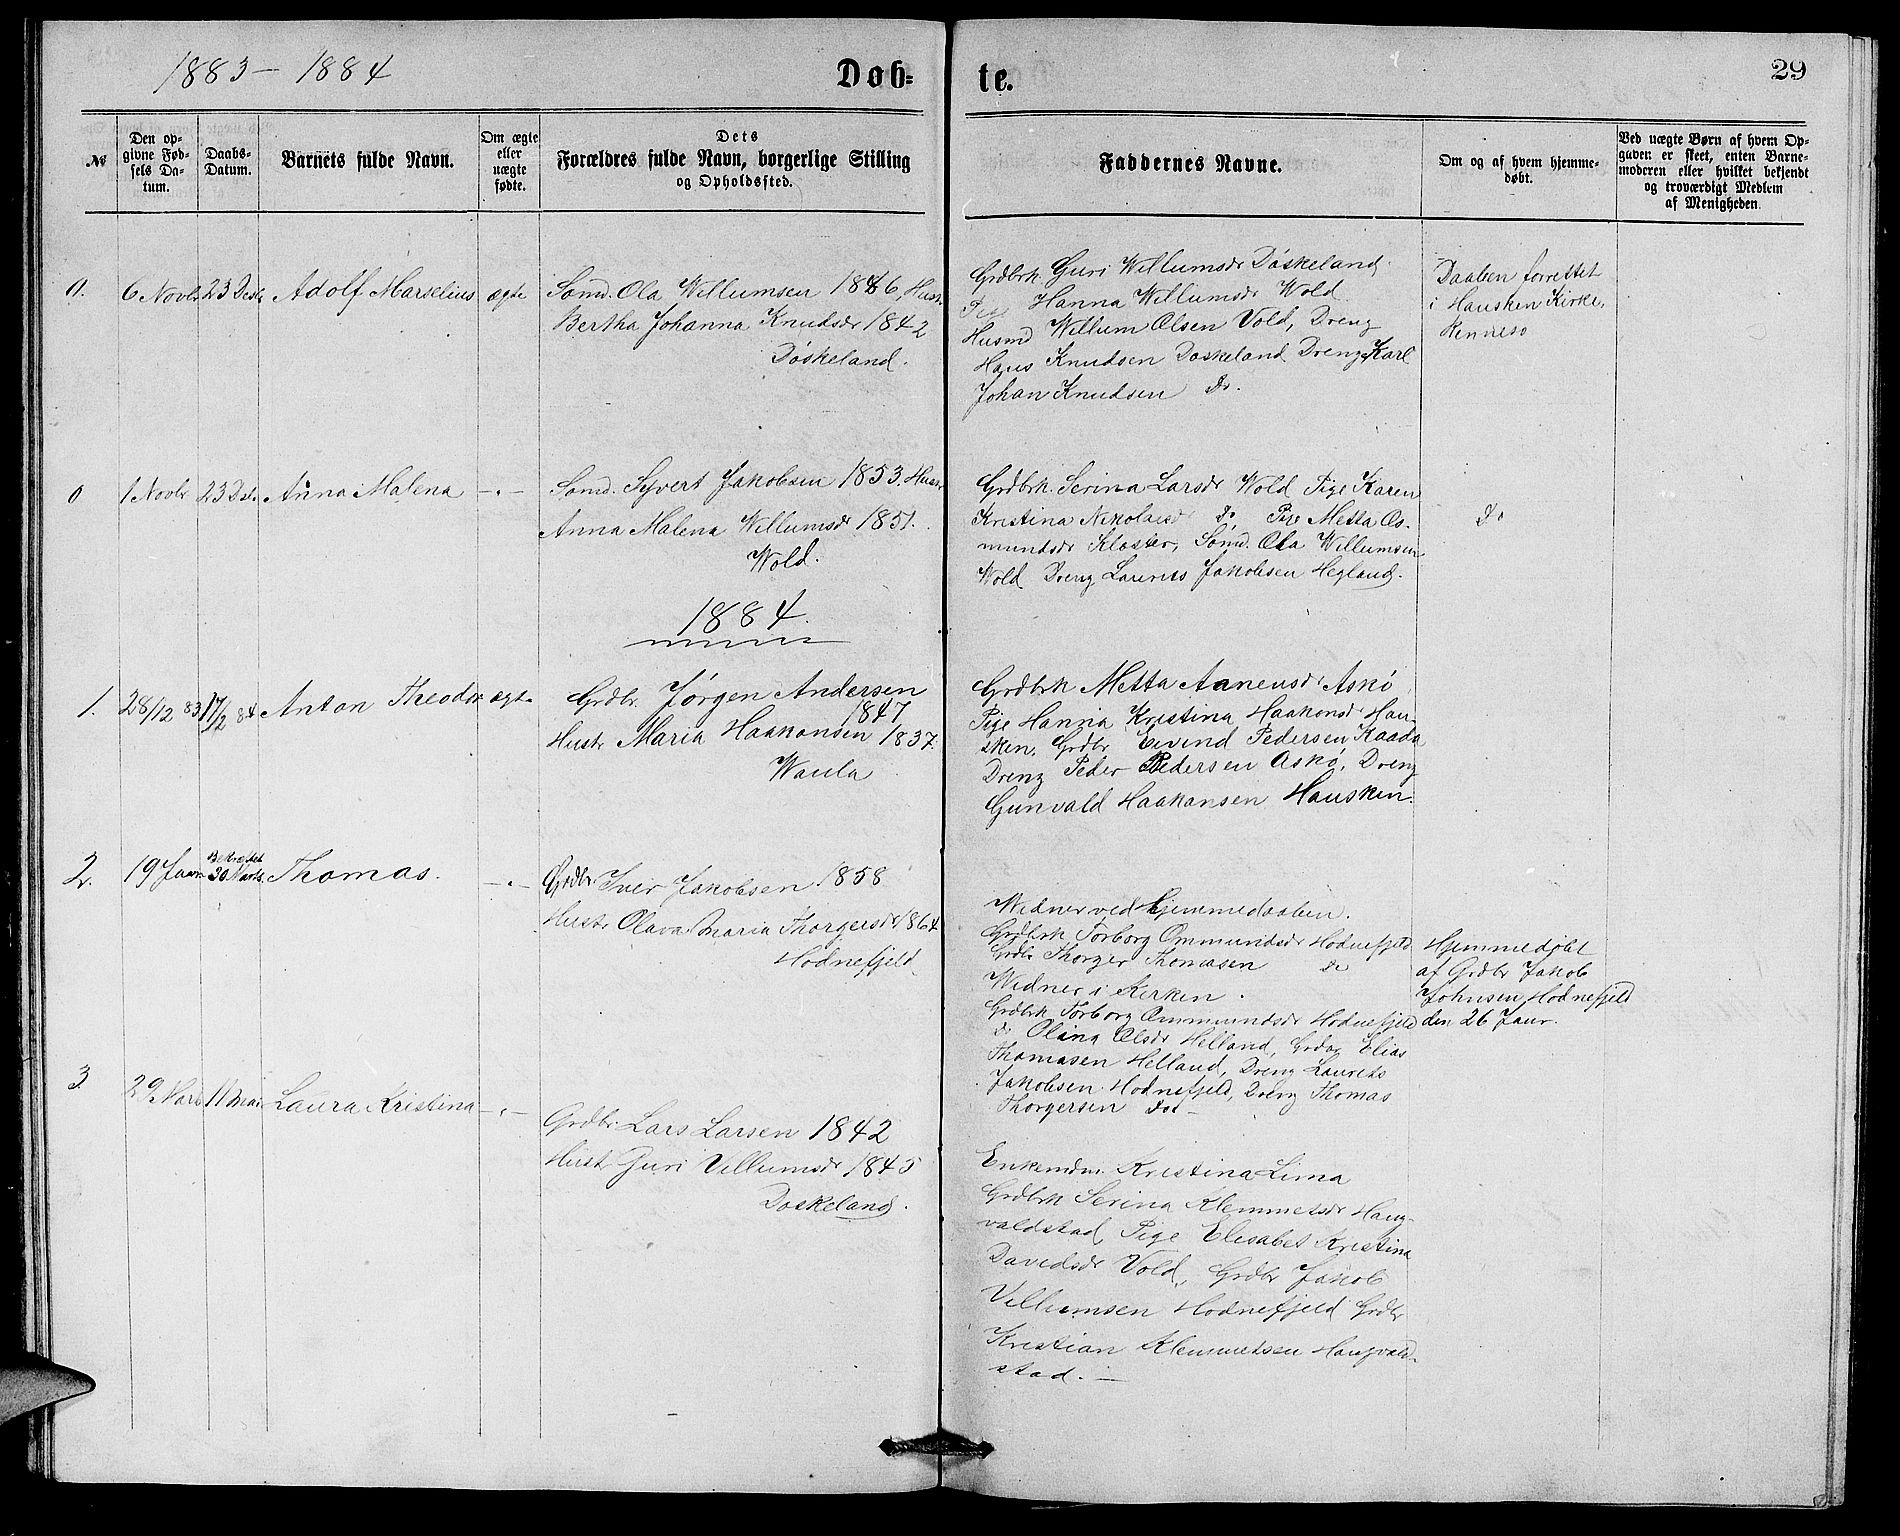 1883 – 1884
Døb-
te.
29
№
Den op-
givne Fød-
sels Da-
tum.
Daabs-
Datum.
Barnets fulde Navn.
Om ægte
eller
uægte
fødte.
Dets
Forældres fulde Navn, borgerlige Stilling
og Opholdssted.
Faddernes Navne.
Om og af hvem hjemme-
døbt.
Ved uægte Børn af hvem Op-
gaven er skeet, enten Barne-
moderen eller hvilket bekjendt
og troværdigt Medlem
af Menigheden.
0. 6 Novbr 23 Decb. Adolf Marselius ægte
Sømd. Ola Willumsen 1846, Hustr.
Bertha Johanna Knudsdr 1842
Døskeland.
Grdbrk. Guri Willumsdr Døskeland.
Pige Hanna Willumsdr Wold
Husmd Willum Olsen Vold, Dreng
Hans Knudsen Døskeland Dreng Karl
Johan Knudsen Do.
Daaben forrettet
i Hausken Kirke,
Rennesø
0 1 Novbr 23 Dcb. Anna Malena –"–
Sømd. Syvert Jakobsen 1853. Hustr
Anna Malena Willumsdr 1851.
Wold.
Grdbrk. Serina Larsdr Wold Pige Karen
Kristina Nikolaisdr Do Pige Metta Os-
mundsdr Kloster, Sømd. Ola Willumsen
Wold Dreng Laurits Jakobsen Hegland.
Do
1884.
1. 28/12 83 17/2 84 Anton Theodor ægte
Grdbr. Jørgen Andersen
1847
Hustr Maria Haakonsen 1837.
Waula
Grdbrk Metta Aanensdr Askø
Pige Hanna Kristina Haakonsdr Hau-
sken, Grdbr Eivind Pedersen Kaada
Dreng Peder Pedersen Askø, Dreng
Gunvald Haakonsen Hausken.
2. 19 Janr Bekræftet
30 Marts. Thomas. –"–
Grdbr. Iver Jakobsen 1858
Hustr Olava Maria Thorgersdr 1864
Hodnefjeld
Widner ved Hjemmedaaben.
Grdbrk Torborg Ommundsdr Hodnefjeld
Grdbr Thorger Thomasen Do
Widner i Kirken.
Grdbrk Torborg Ommundsdr Hodnefjeld
Do Olina Olsdr Helland, Grdbr Elias
Thomasen Helland, Dreng Laurits
Jakobsen Hodnefjeld, Dreng Thomas
Thorgersen Do –
Hjemmedøbt
af Grdbr Jakob
Johnsen Hodnefjeld
den 26 Janr.
3. 29 Marts 11 Mai Laura Kristina –"–
Grdbr Lars Larsen 1842
Hustr Guri Villumsdr 1845
Døskeland.
Enkemdm. Kristina Lima
Grdbrk Serina Klemmetsdr Haug-
valdstad, Pige Elisabet Kristina
Davidsdr Vold, Grdbr Jakob
Villumsen Hodnefjeld Grdbr
Kristian Klemmetsen Haugvald-
stad. –